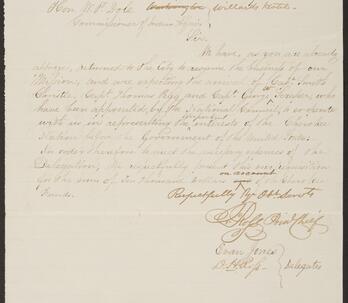 Hon W. P. Dole Washington Willards Hotel
Commissioner of Indian Affairs
Sir
We have, as you are already
advised, returned to the City to resume the business of our
Mission, and are expecting the arrival of Capt Smith
Christie, Capt Thomas Pegg and Capt
have been appointed, by the National Council, to cooperate
with us in representing the important interests of the Cherokee
Nation before the Government of the United States.
In order therefore to meet the necessary expenses of the
Delegation, We respectfully make this our requisition
for the sum of Ten thousand Dollars on account of the Cherokee
Funds.
Respectfully Yr Obt Servts
Jno Ross Prin'l Chief
Evan Jones
D. H. Ross
Delegates